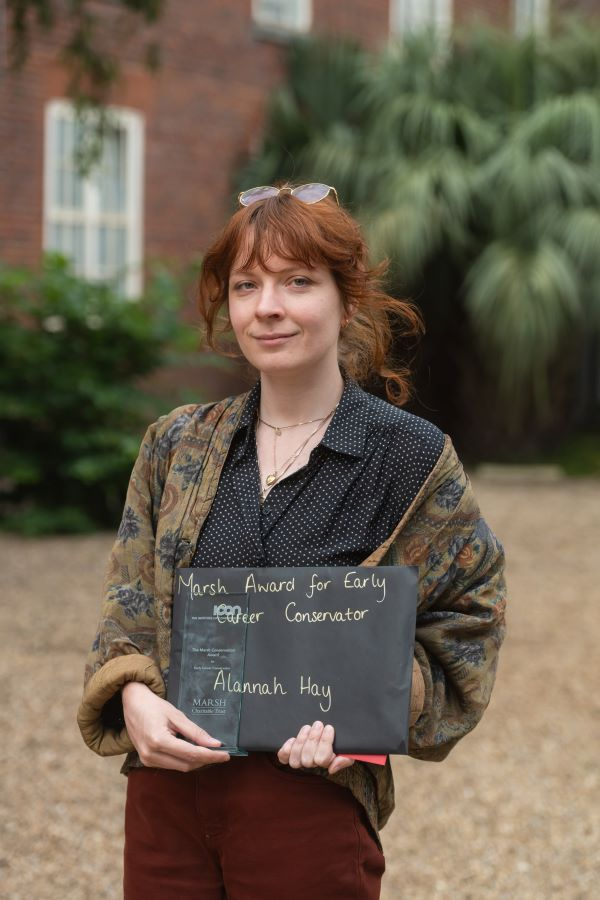 Marsh Award for Early
Career Conservator
Alannah Hay
icon
The Marsh Conservation
Award
MARSH
Charitable Trust